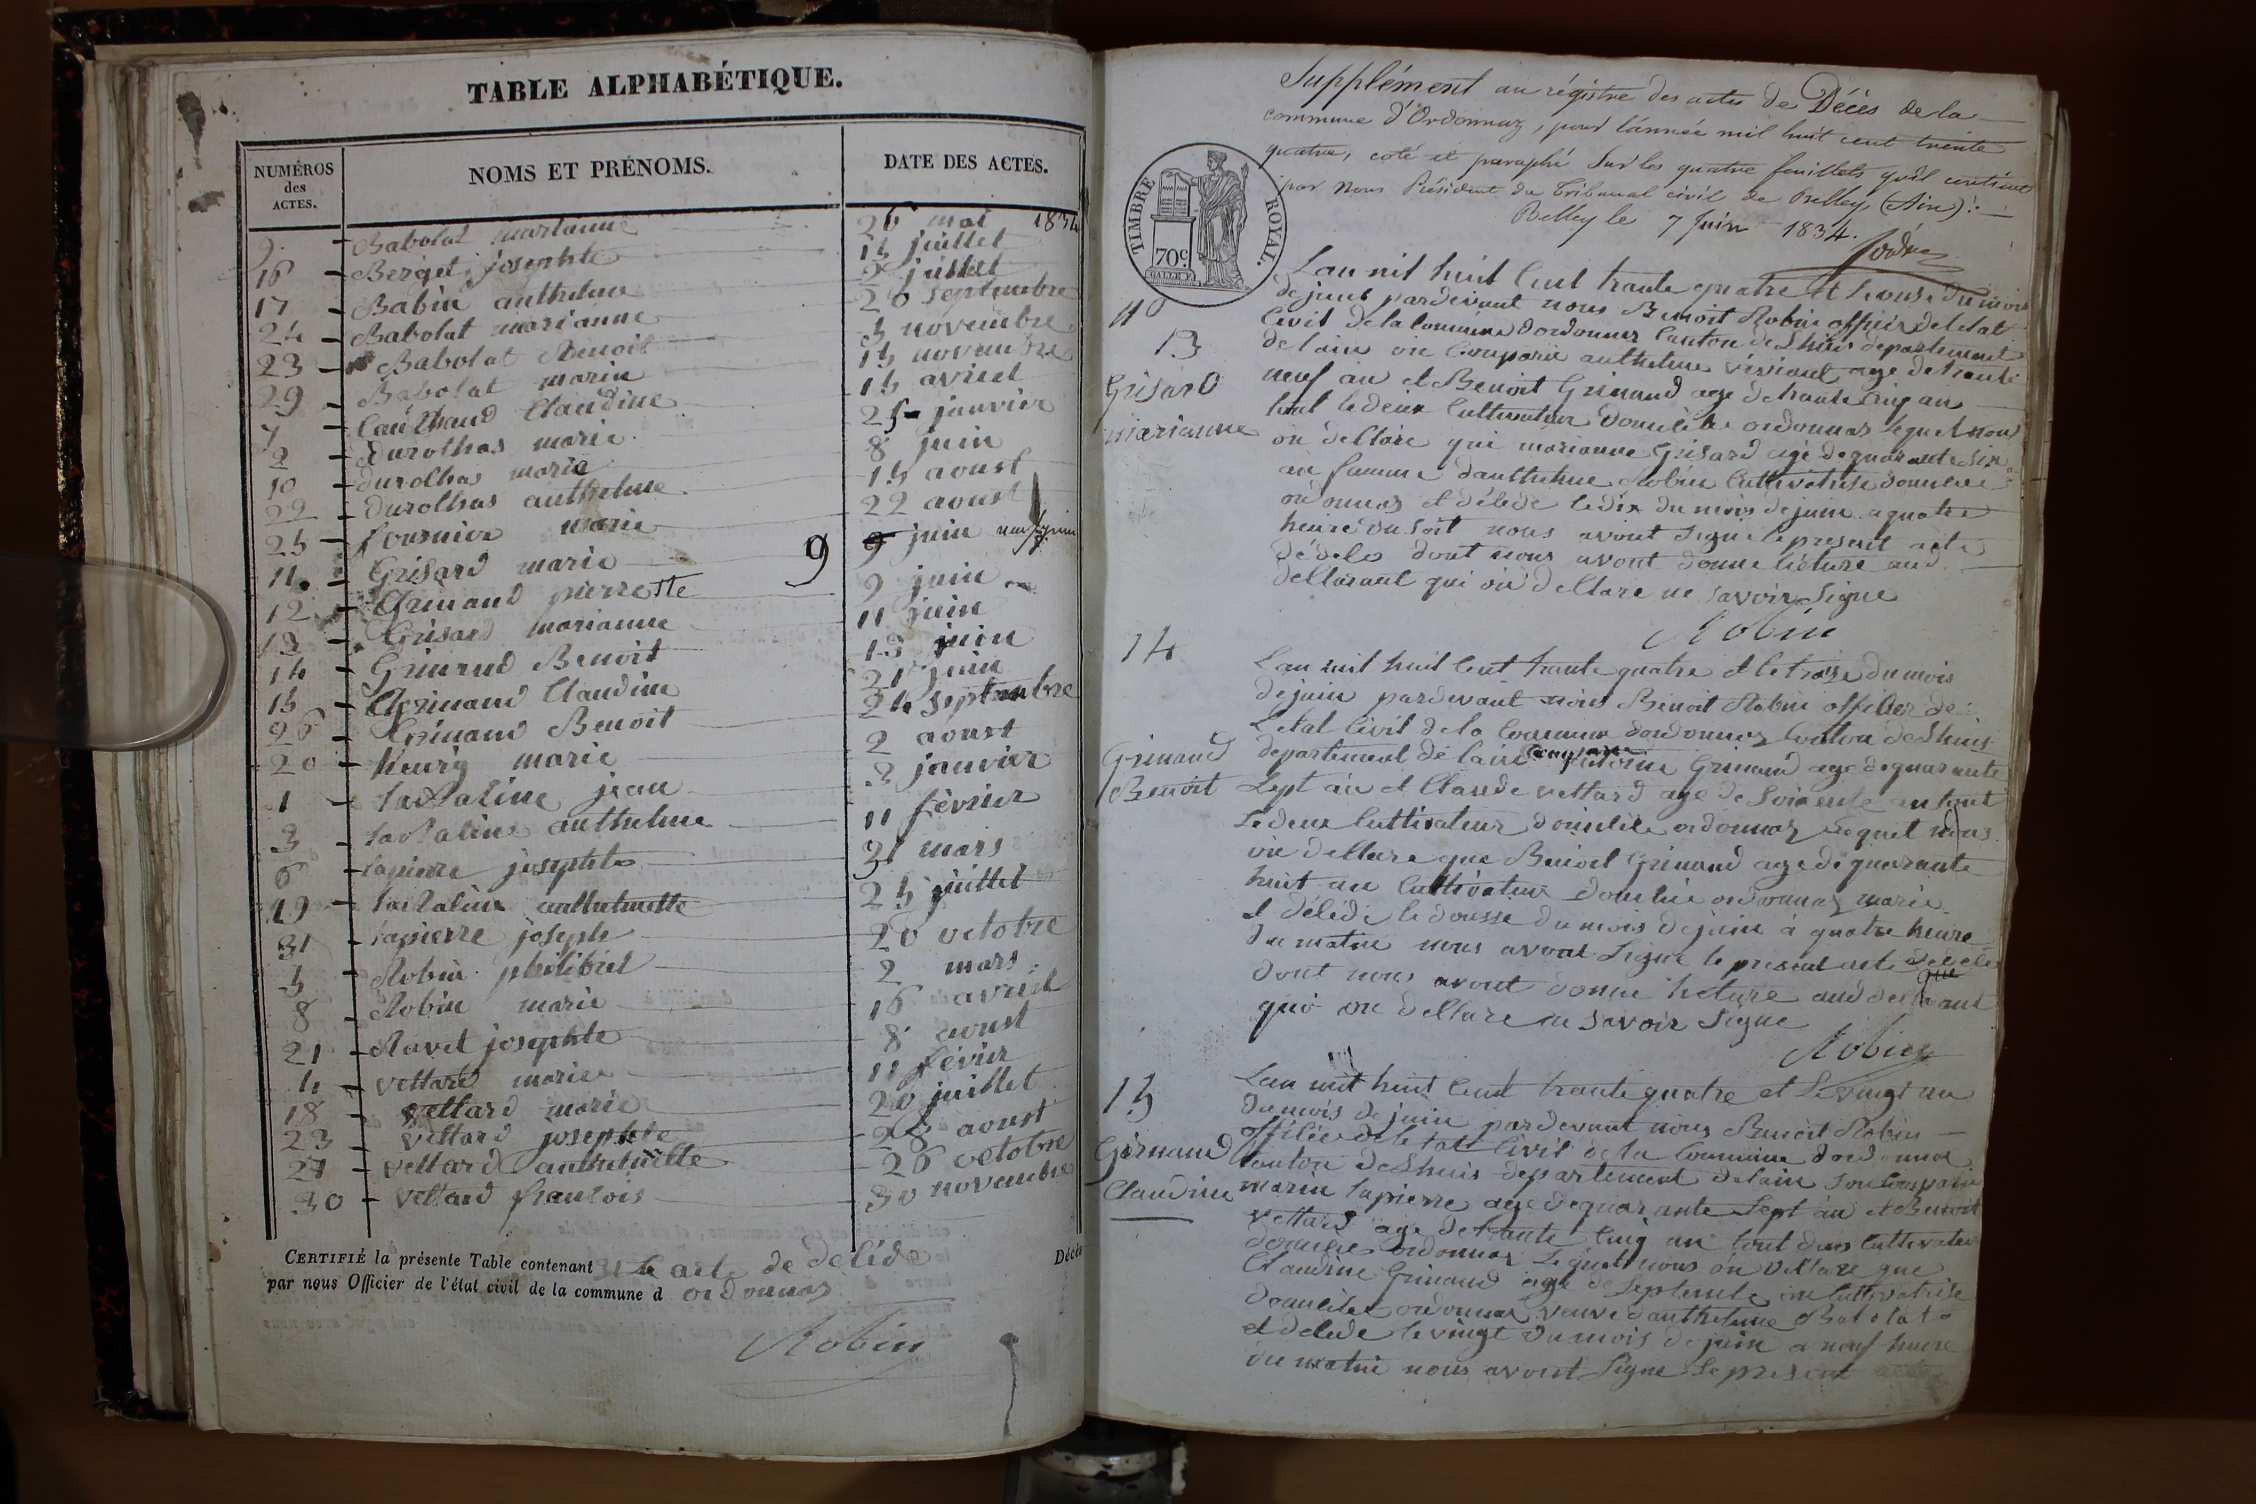 TABLE ALPHABÉTIQUE.
NUMÉROS
des
ACTES.
NOMS ET PRÉNOMS.
DATE DES ACTES.
9 Babolat marianne 26 mai 1834
16 Berget josephte 15 juillet
17 Babin anthelme juillet
24 Babolat marianne 20 septembre
Babolat Benoit 3 novembre
29 Babolat marin 15 novembre
7 Claudine 15 avriel
2 Durothas marie 25 janvier
10 Durolhas marie 8 juin
22 Durolhas anthelme 15 aoust
25 fournier marie 22 aoust
11 Grisard marie 9 9 juin
12 Grinand pierrette 9 juin
13 Grisard marianne 11 juin
14 Grinand Benoit 13 juin
15 Grinand Claudine 21 juin
26 Grinand Benoit 24 septembre
20 henrÿ marie 2 aoust
1 jean 3 janvier
3 anthelme 11 février
6 lapierre josephte 31 mars
19 anthelmette 25 juillet
31 lapierre joseph 20 octobre
5 Robin philibert 2 mars
8 Robin marie 16 avriel
21 Ravet josephte 8 aoust
4 vettard marie 11 févier
18 vettard marie 20 juillet
23 vettard josephte 28 aoust
27 vettard anthelmette 26 octobre
30 vettard francois 30 novembre
CERTIFIÉ la présente Table contenant 31 acte de délédé Décès
par nous Officier de l'état civil de la commune d ordonnas
Robin
Supplément au régistre des actes de Décès de la
commune d'Ordonnaz, pour l'année mil huit cent trente
quatre, coté et paraphé Sur les quatre feuillets qu'il contient
par Nous Président du Tribunal civil de Belley (Ain).
Belley le 7 Juin 1834.
TIMBRE ROYAL.
70c
Lan mil huit Cent trante quatre et le onse du mois
de juin pardevant nous Benoit Robin officier de letat
Civil de la Commune dordonnas Canton de Lhuis departement
de lain on Comparu anthelme age de trante
neuf an et Benoit Grinand age de trante cinq an
tout le deux Cultivateur domicilié ordonnas lequel nous
on dellare qui marianne Grisard agé de quarante six
an famme danthelme Robin Cultivatrise domicilié
ordonnas et délédé le dix du mois de juin a quatre
heure du soir nous avont signe le present acte
dédele dont nous avont donne lecture aud
dellarant qui on dellare ne savoir signe
Robin
13
Grisard
marianne
14
Grinand
Benoit
Lan mil huit Cent trante quatre et le traize du mois
de juin pardevant nous Benoit Robin officier de
Letat Civil de la Commune dordonnas Canton de Lhuis
departement de lain Grinand age de quarante
sept an et Claude vettard age de soisente an tout
Le deux Cultivateur domicilié ordonnas Lequel nous
on dellare que Benoit Grinand age de quarante
huit an Cultivateur domicilié ordonnas marié
et délédé le dousse du mois de juin à quatre heure
du matin nous avont signe le present acte
dont nous avont donne lecture aud dellarant
qui on dellare ne savoir signe
Robin
15
Grinand
Claudine
Lan mil huit Cent trante quatre et Le vingt un
du mois de juin pardevant nous Benoit Robin
officié de letat Civil de la Commune dordonnas
Canton de Lhuis departement de lain
marin lapierre age de quarante sept an et Benoit
vettard age de trante cinq an tout deux Cultivateur
domicilié ordonnas Lequel nous on dellare que
Claudine Grinand age de septente an Cultivatrise
domicilié ordonnas veuve danthelme Babolat
et délédé le vingt du mois de juin a neuf heure
du matin nous avont signe le present acte